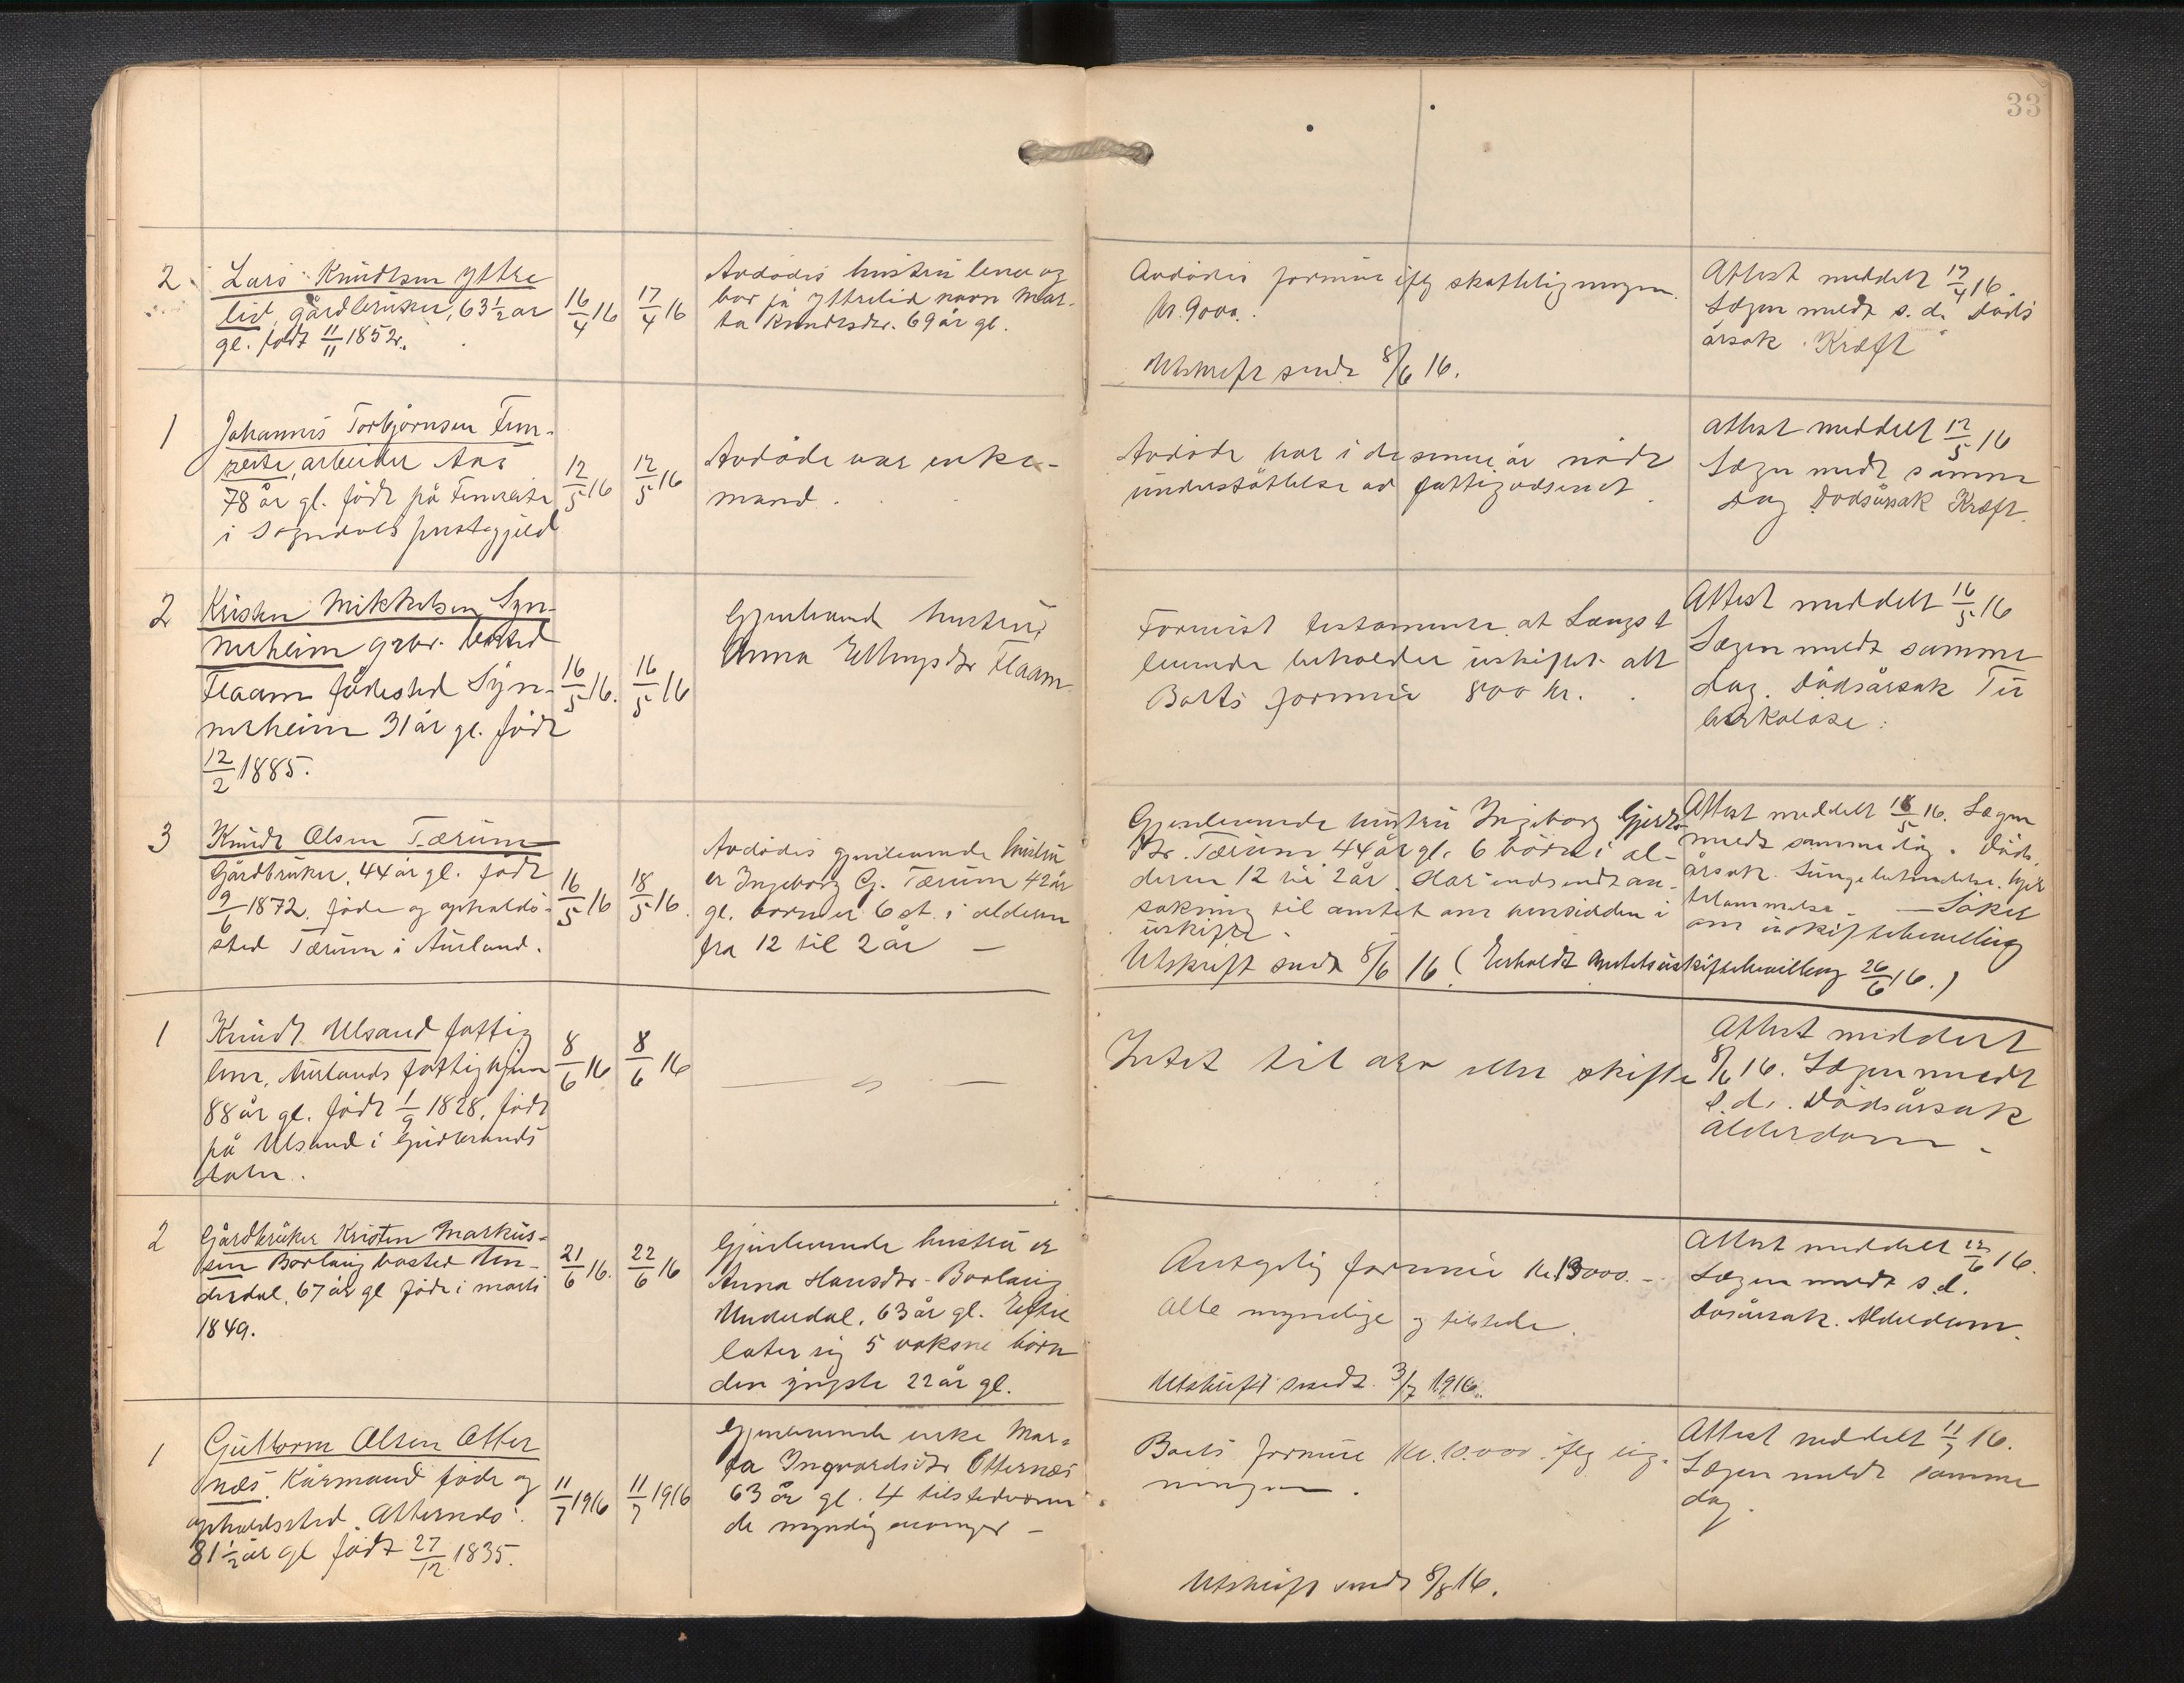 33
2
Lars Knudtsen Yttre
lid, gårdbruker, 63 1/2 år
gl. født 11/11 1852.
16/4 16
17/4 16
Avdødes hustru lever og
bor på Yttrelid navn Mar-
ta Knudtsdtr. 69 år gl.
Avdødes formue iflg skatteligningen
kr. 9000.
Utskrift sendt 8/6 16.
Attest meddelt 17/4 16.
Lægen meldt s. d. Døds
årsak Kræft
1
Johannes Torbjørnsen Fim-
reite, arbeider
78 år gl. født på Fimreite
i Sogndals prestegjeld
12/5 16
12/5 16
Avdøde var enke-
mand.
Avdøde har i de senere år nådt
understøttelse av fattigvæsenet.
Attest meddelt 12/5 16
Lægen meldt samme
dag Dødsårsak Kræft.
2
Kristen Mikkelsen Syn-
nerheim grbr. bosted
Flaam fødested Syn-
nerheim 31 år gl. født
12/2 1885.
16/5 16.
16/5 16
Gjenlevende hustru
Anna Ellingsdtr Flaam
Formist testamente at Længst
levende beholder uskiftet alt
Boets formue 800 kr.
Attest meddelt 16/5 16
Lægen meldt samme
dag. Dødsårsak Tu
berkolose.
3
Knudt Olsen Tærum
Gårdbruker, 44 år gl. født
9/6 1872. føde og opholds-
sted Tærum i Aurland.
16/5 16
18/5 16.
Avdødes gjenlevende hustru
er Ingeborg G. Tærum 42 år
gl. børn er 6 st. i alderen
fra 12 til 2 år —
Gjenlevende hustru Ingeborg Gjerts
dtr. Tærum 44 år gl. 6 børn i al-
deren 12 til 2 år. Har indsendt an-
søkning til amtet om hensidden i
uskifte.
Utskrift sendt 8/6 16 (Erholdt Amtets uskiftebevilling 26/6 16.)
Attest meddelt 18/5 16. Lægen
meldt samme dag. Døds
årsak. Lungebetændelse. hjer
telammelse — Søker
om uskiftebevilling
1
Knudt Ulsand fattig
lem, Aurlands fattighjem
88 år gl. født 1/9 1828, født
på Ulsand i Gudbrands
dalen.
8/6 16
8/6 16
Intet til arv eller skifte
Attest meddelt
8/6 16. Lægen meldt
s. d. Dødsårsak
Alderdom —
2
Gårdbruker Kristen Markus-
sen Borlaug bosted Un-
derdal, 67 år gl født i marts
1849.
21/6 16.
22/6 16
Gjenlevende hustru er
Anna Hansdtr. Borlaug
Underdal, 63 år gl. Efter
later sig 5 voksne børn
den yngste 22 år gl.
Antagelig formue kr. 13000. -
Alle myndige og tilstede.
Utskrift sendt 3/7 1916.
Attest meddelt 22/6 16.
Lægen meldt s. d.
Dødsårsak. Alderdom.
1
Guttorm Olsen Otter
nes. Kårmand føde og
opholdssted Otternes.
81 1/2 år gl født 27/12 1835.
11/7 1916
11/7 1916
Gjenlevende enke Mar-
ta Ingvardsdtr Otternes
63 år gl. 4 tilstedværen
de myndig
Boets formue kr. 10.000 iflg lig-
ningen.
Utskrift sendt 8/8 16.
Attest meddelt 11/7 16.
Lægen meldt samme
dag.